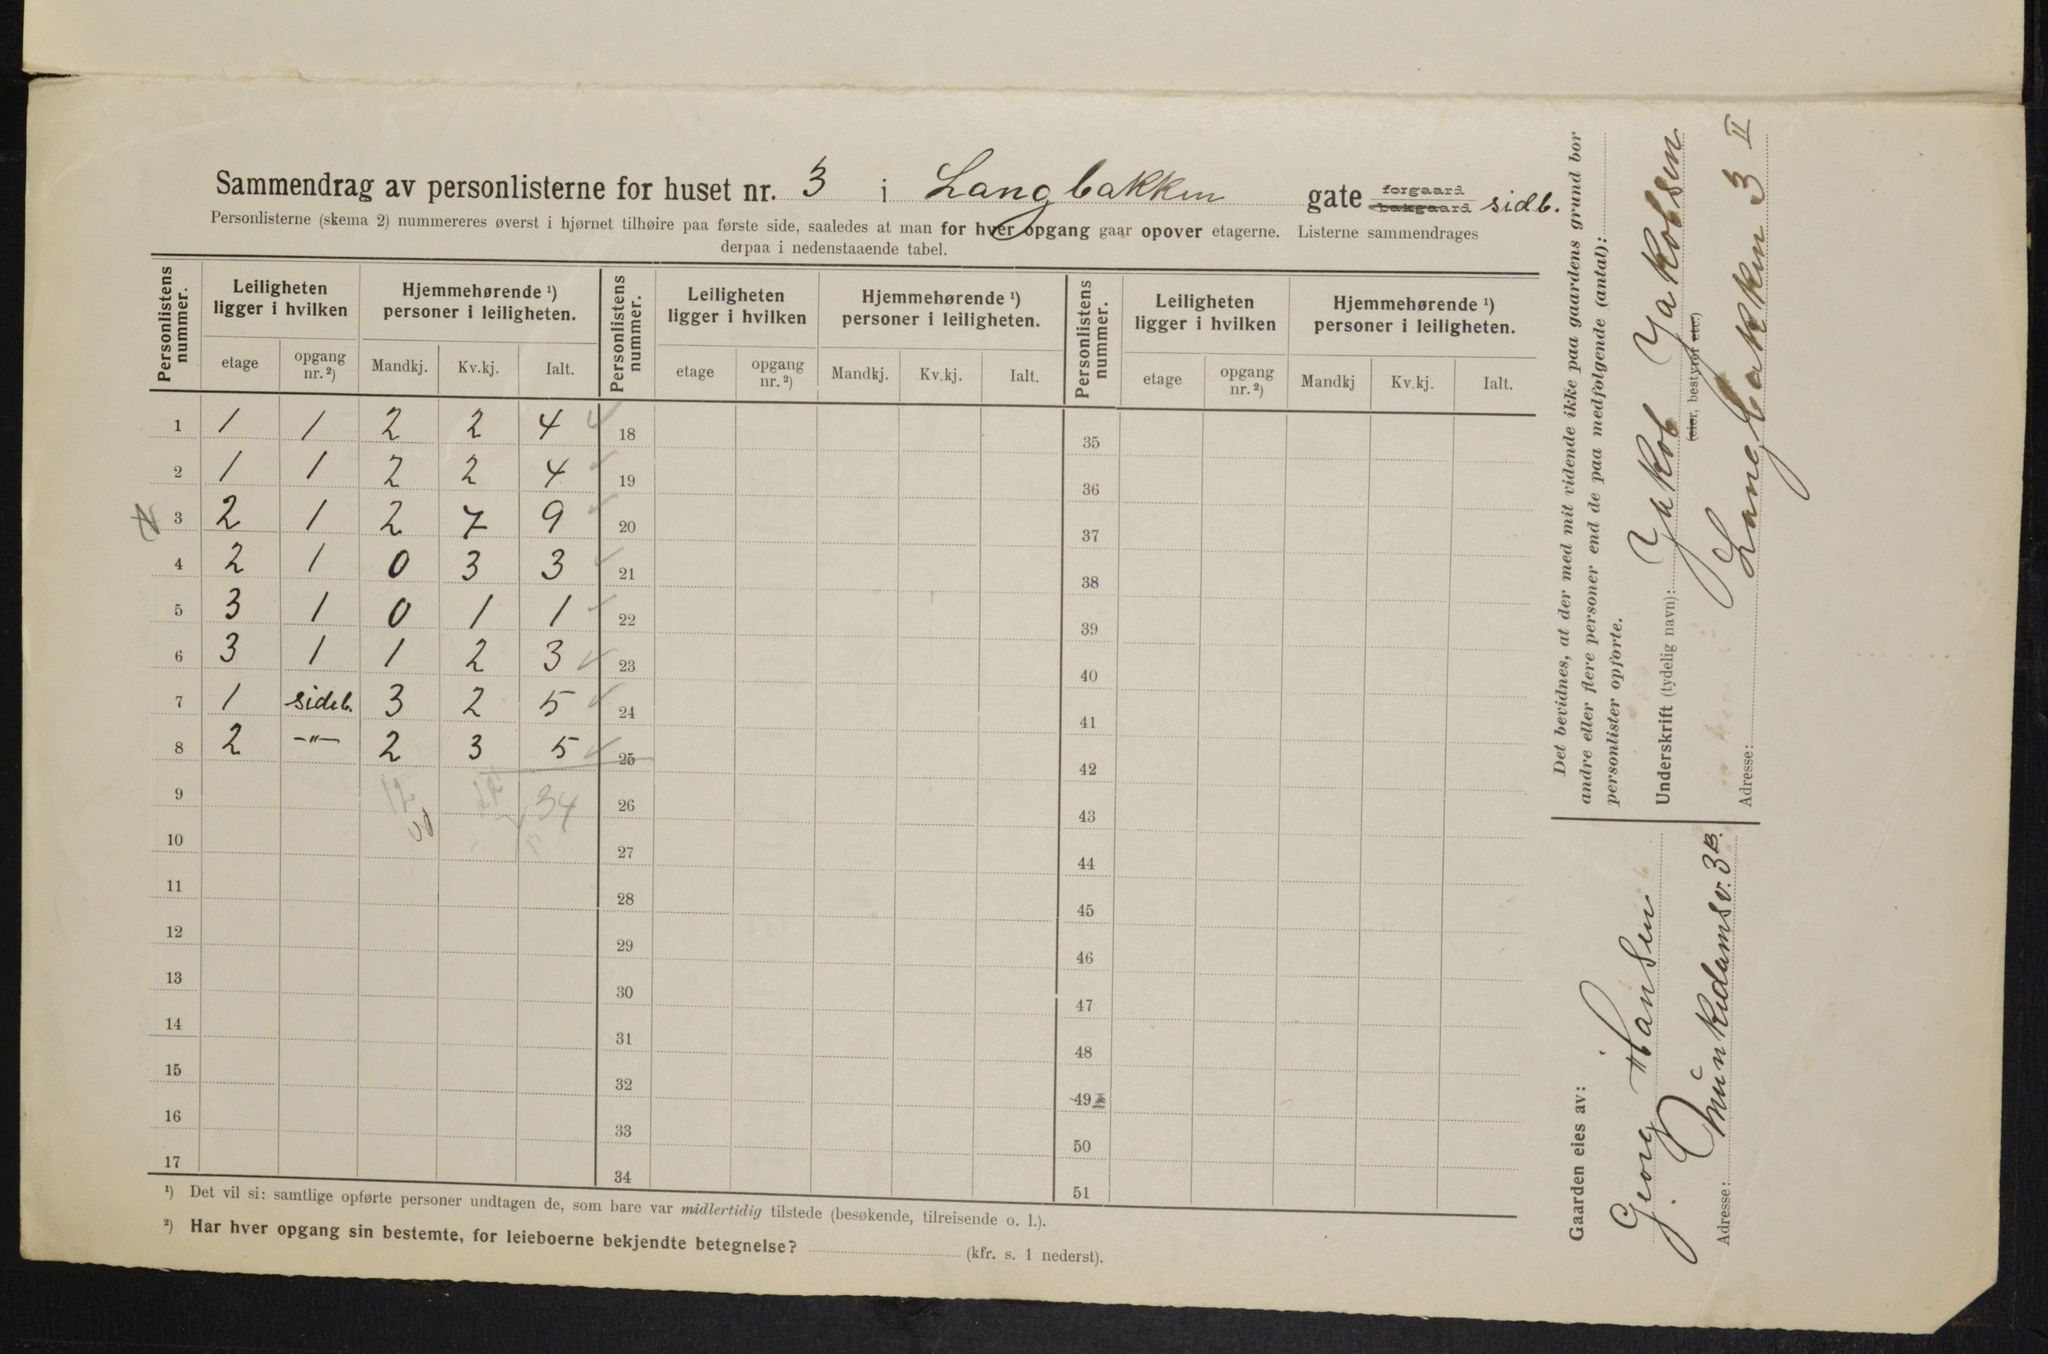 Sammendrag av personlisterne for huset nr. 3 i Langbakken gate forgaard bakgaard sidb.
Personlisterne (skema 2) nummereres øverst i hjørnet tilhøire paa første side, saaledes at man for hver opgang gaar opover etagerne. Listerne sammendrages
derpaa i nedenstaaende tabel.
Personlistens nummer. Leiligheten ligger i hvilken Hjemmehørende ¹) personer i leiligheten. Personlistens nummer. Leiligheten ligger i hvilken Hjemmehørende ¹) personer i leiligheten. Personlistens nummer. Leiligheten ligger i hvilken Hjemmehørende ¹) personer i leiligheten.
etage opgang nr. ²) Mandkj. Kv.kj. Ialt. etage opgang nr. ²) Mandkj. Kv.kj. Ialt. etage opgang nr. ²) Mandkj Kv.kj. Ialt.
1 1 1 2 2 4 ✓ 18 35
2 1 1 2 2 4 ✓ 19 36
3 2 1 2 7 9 ✓ 20 37
4 2 1 0 3 3 ✓ 21 38
5 3 1 0 1 1 ✓ 22 39
6 3 1 1 2 3 ✓ 23 40
7 1 sideb. 3 2 5 ✓ 24 41
8 2 -"- 2 3 5 ✓ 25 42
9 12 34 26 43
10 27 44
11 28 45
12 29 46
13 30 47
14 31 48
15 32 49
16 33 50
17 34 51
¹) Det vil si: samtlige opførte personer undtagen de, som bare var midlertidig tilstede (besøkende, tilreisende o. l.).
²) Har hver opgang sin bestemte, for leieboerne bekjendte betegnelse? (kfr. s. 1 nederst).
Det bevidnes, at der med mit vidende ikke paa gaardens grund bor
andre eller flere personer end de paa medfølgende (antal):
personlister opførte.
Underskrift (tydelig navn): Yakob Yakobsen
(eier, bestyrer etc.)
Adresse: Langbakken 3 II
Gaarden eies av:
Georg Hansen
Adresse: Munkedamsv. 3B.